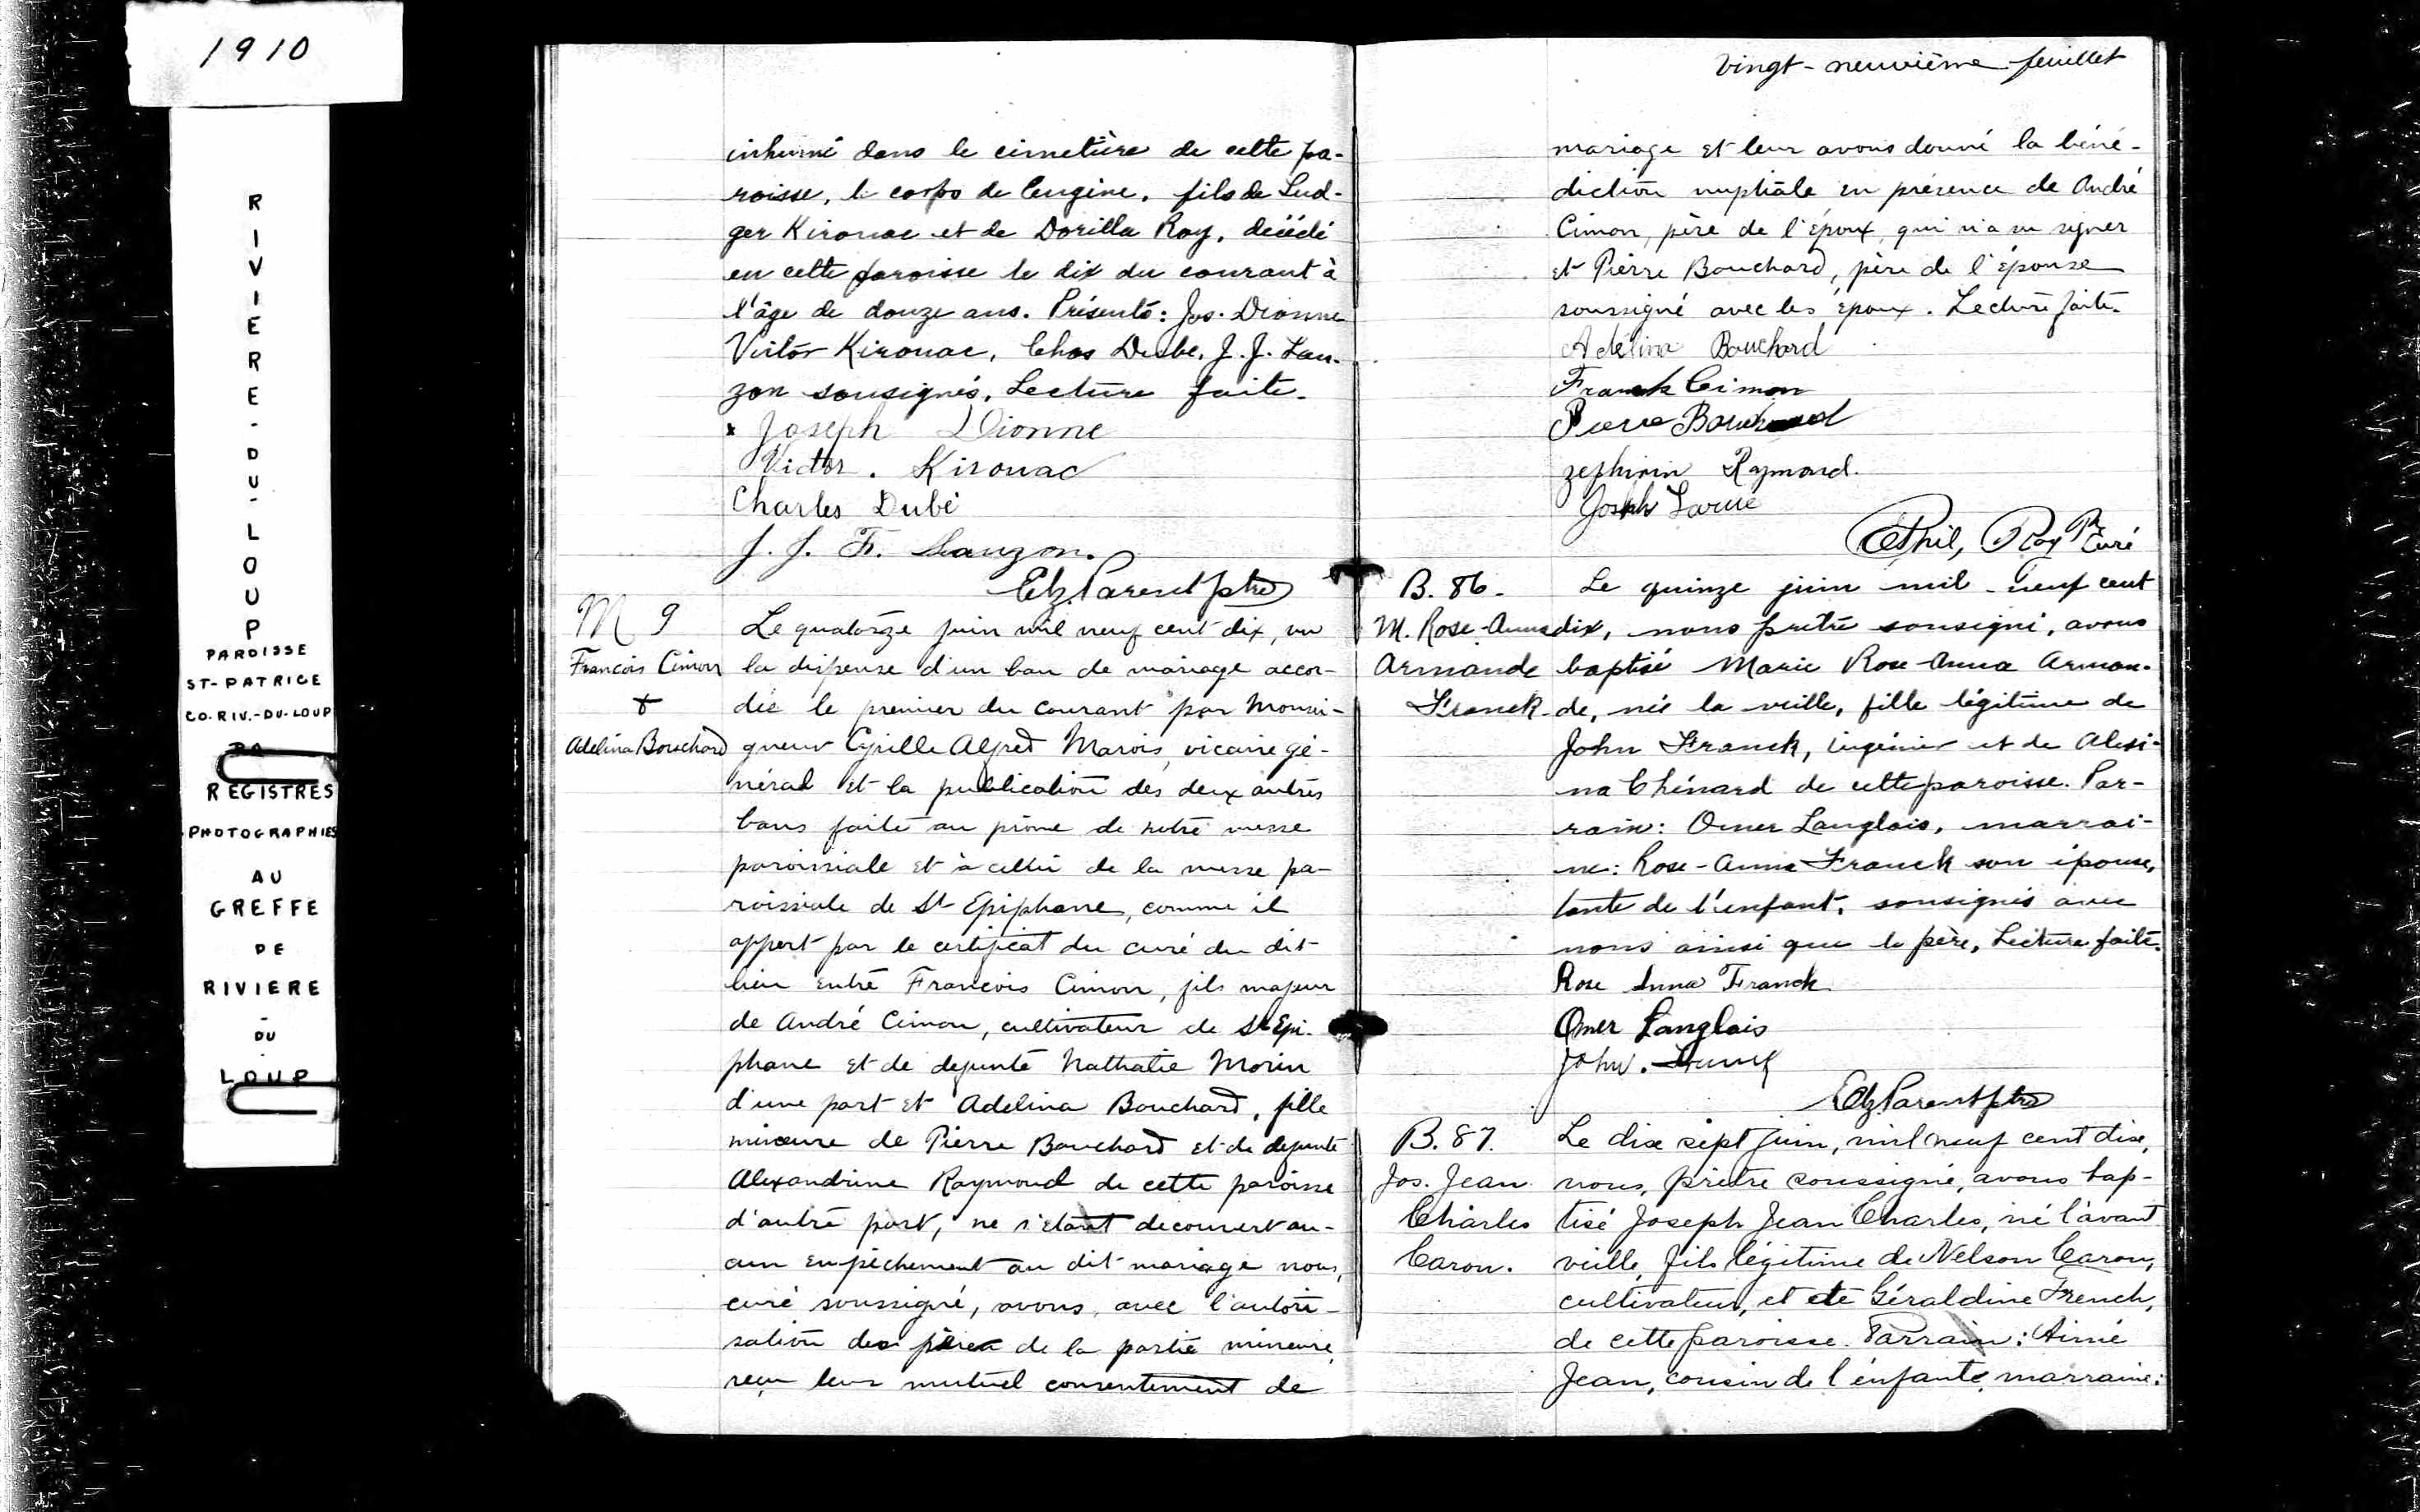 1910
RIVIERE-DU-LOUP
PAROISSE
ST-PATRICE
CO. RIV.-DU-LOUP
REGISTRES
PHOTOGRAPHIES
AU
GREFFE
DE
RIVIERE
-
DU
-
LOUP
inhumé dans le cimetière de cette pa-
roisse, le corps de Eugène, fils de Lud-
ger Kirouac et de Dorilla Roy, décédé
en cette paroisse le dix du courant à
l'âge de douze ans. Présents: Jos. Dionne
Victor Kirouac, Chas Dube, J. J. Lau-
zon sousignés, Lecture faite.
x Joseph Dionne
Victor. Kirouac
Charles Dubé
J. J. F. Lauzon.
Elz. Parent ptre
M 9
François Cimon
+
Adelina Bouchard
Le quatorze juin mil neuf cent dix, vu
la dispense d'un ban de mariage accor-
dée le premier du courant par Monsei-
gneur Cyrille Alfred Marois, vicaire gé-
néral et la publication des deux autres
bans faite au prône de notre messe
paroissiale et à celui de la messe pa-
roissiale de St Epiphane, comme il
appert par le certificat du curé du dit
lieu entre François Cimon, fils majeur
de André Cimon, cultivateur de St Epi-
phane et de defunte Nathalie Morin
d'une part et Adelina Bouchard, fille
mineure de Pierre Bouchard et de defunte
Alexandrine Raymond de cette paroisse
d'autre part, ne s'étant decouvert au-
cun empêchement au dit mariage nous,
curé soussigné, avons, avec l'autori-
sation des père de la partie mineure,
reçu leur mutuel consentement de
vingt-neuvième feuillet
mariage et leur avons donné la béné-
diction nuptiale en présence de André
Cimon, père de l'époux, qui n'a su signer
et Pierre Bouchard, père de l'épouse
soussigné avec les époux. Lecture faite.
Adélina Bouchard
Franck Cimon
Pierre Bouchard
zephirin Raymond.
Joseph Larue
Phil, Roy Ptre Curé
B. 86.
M. Rose-Anna
Armande
Franck
Le quinze juin mil-neuf cent
dix, nous prêtre sousigné, avons
baptisé Marie Rose-Anna Arman-
de, née la veille, fille légitime de
John Franck, ingénieur et de Alexi-
na Chénard de cette paroisse. Par-
rain: Omer Langlois, marrai-
ne: Rose-Anna Franck son épouse,
tante de l'enfant, sousignés avec
nous ainsi que le père, Lecture faite.
Rose Anna Franck
Omer Langlois
John. Franck
Elz Parent ptre
B. 87.
Jos. Jean
Charles
Caron.
Le dix sept juin, mil neuf cent dix,
nous, prêtre soussigné, avons bap-
tisé Joseph Jean Charles, né l'avant
veille, fils légitime de Nelson Caron,
cultivateur, et de Géraldine French,
de cette paroisse. Parrain: Aimé
Jean, cousin de l'enfant, marraine: